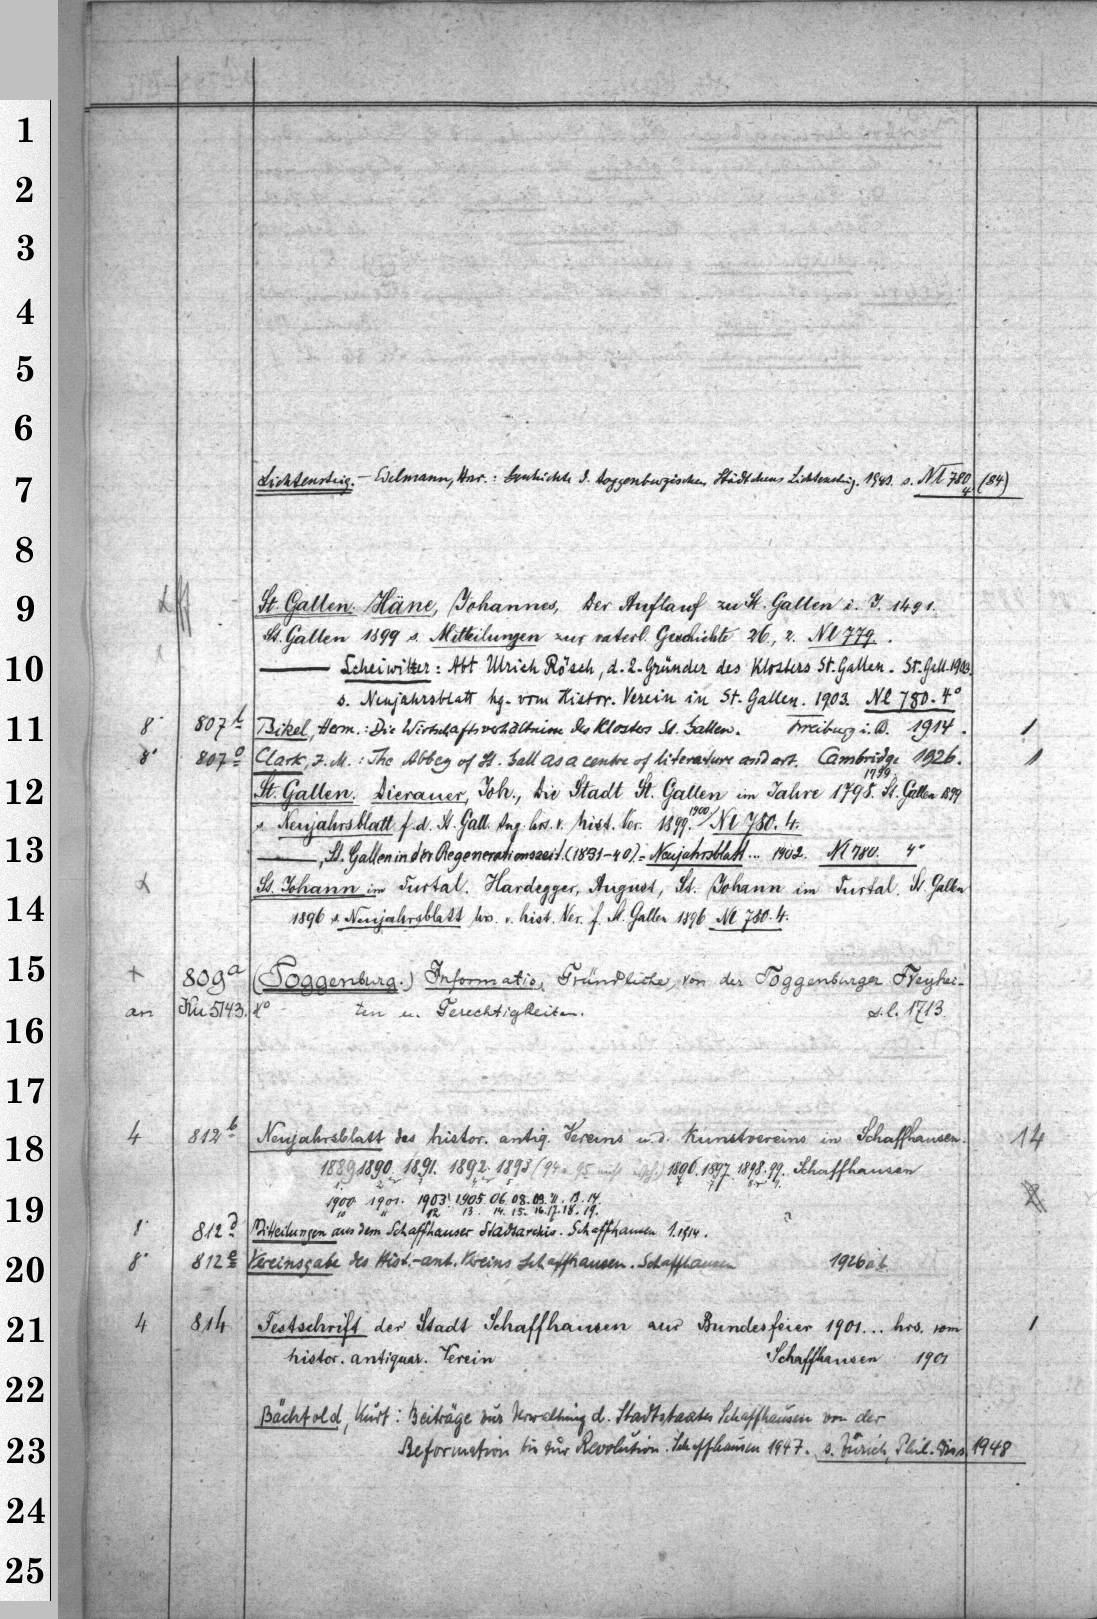 1
2
3
4
5
6
7 Lichtensteig. – Edelmann, Hnr.: Geschichte d. toggenburgischen Städtchens Lichtensteig. 1943. s. Nl 780 4° (84)
8
9 St. Gallen. Häne, Johannes, Der Auflauf zu St. Gallen i. J. 1491.
St. Gallen 1899 s. Mitteilungen zur vaterl. Geschichte 26, 2. Nl 779.
10 Scheiwiller: Abt Ulrich Rösch, d. 2. Gründer des Klosters St. Gallen. St. Gall. 1903.
s. Neujahrsblatt hg. vom Histor. Verein in St. Gallen. 1903. Nl 780. 4°
11 8° 807 Bikel, Herm.: Die Wirtschaftsverhältnisse des Klosters St. Gallen. Freiburg i. B. 1914. 1
8° 807 Clark, J. M.: The Abbey of St. Gall as a centre of literature and art. Cambridge 1926. 1
12 St. Gallen. Dierauer, Joh., Die Stadt St. Gallen im Jahre 1798. 1799. St. Gallen 1899
s. Neujahrsblatt f. d. St. Gall. Jug. hrs. v. hist. Ver. 1899. 1900 Nl 780. 4.
13 , St. Gallen in der Regenerationszeit (1831–40) = Neujahrsblatt ... 1902. Nl 780. 4°
St. Johann im Turtal. Hardegger, August, St. Johann im Turtal. St. Gallen
14 1896 s. Neujahrsblatt hrs. v. hist. Ver. f. St. Gallen 1896 Nl 780. 4.
15 + 809 a (Toggenburg.) Informatio, Gründliche, von der Toggenburger Freyhei-
an Ku 5143. 4° ten u. Gerechtigkeiten. s. l. 1713
16
17
18 4 812 b Neujahrsblatt des histor. antiq. Vereins u. d. Kunstvereins in Schaffhausen. 14
1889 1890. 1891. 1892. 1893 (94 u. 95 nicht ) 1896. 1897. 1898. 99. Schaffhausen
19 1900 1901. 1903 1905 06. 08. 09. 11. 13. 14.
10 11 12 13. 14. 15. 16. 17. 18. 19.
8° 812 d Mitteilungen aus dem Schaffhauser Stadtarchiv. Schaffhausen 1. 1914.
20 8° 812 e Vereinsgabe des Hist.-ant. Vereins Schaffhausen. Schaffhausen 1926 ab.
21 4 814 Festschrift der Stadt Schaffhausen zur Bundesfeier 1901... hrs. vom 1
histor. antiquar. Verein Schaffhausen 1901
22
Bächtold, Kurt: Beiträge zur Verwaltung d. Stadtstaates Schaffhausen von der
23 Reformation bis zur Revolution. Schaffhausen 1947. s. Zürich, Phil. Diss. 1948
24
25